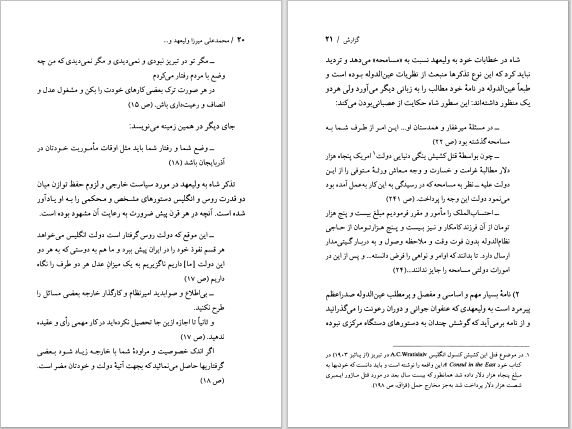 ۲۰ / محمدعلی میرزا ولیعهد و...
ــ مگر تو در تبریز نبودی و نمی‌دیدی و مگر نمی‌دیدی که من چه
وضع با مردم رفتار می‌کردم
در هر صورت ترک بعضی کارهای خودت را بکن و مشغول عدل و
انصاف و رعیت‌داری باش. (ص ۱۵)
جای دیگر در همین زمینه می‌نویسد:
ــ وضع شما و رفتار شما باید مثل اوقات مأموریت خودتان در
آذربایجان باشد (۱۸)
تذکر شاه به ولیعهد در مورد سیاست خارجی و لزوم حفظ توازن میان
دو قدرت روس و انگلیس دستورهای مشخص و محکمی را به او یادآور
شده است. آنچه در هر قرن پیش ضرورت به رعایت آن مشهود بوده است.
ــ این موقع که دولت روس گرفتار است دولت انگلیس می‌خواهد
هر قسم نفوذ خود را در ایران پیش ببرد و ما هم به دوستی که به هر دو
این دولت [ما] داریم ناگزیریم به یک میزان عدل هر دو طرف را نگاه
داریم (ص ۱۷)
ــ بی‌اطلاع و صوابدید امیرنظام و کارگذار خارجه بعضی مسائل را
طرح نکنید.
و ثانیاً تا اجازه ازین جا تحصیل نکرده‌اید در کار مهمی رأی و عقیده
ندهید. (ص ۱۷)
اگر اندک خصوصیت و مراودهٔ شما با خارجه زیاد شود بعضی
گرفتاریها حاصل می‌نمائید که بجهت آتیهٔ دولت و خودتان مضر است.
(ص ۱۸)
گزارش / ۲۱
شاه در خطابات خود به ولیعهد نسبت به «مسامحه» می‌دهد و تردید
نباید کرد که این نوع تذکرها منبعث از نظریات عین‌الدوله بوده است و
طبعاً عین‌الدوله در نامهٔ خود مطالب را به زبانی دیگر می‌آورد ولی هردو
یک منظور داشته‌اند: این سطور شاه حکایت از عصبانی‌بودن می‌کند:
ــ در مسئلهٔ میرغفار و همدستان او... این امر از طرف شما به
مسامحه گذشته بود (ص ۲۲)
ــ چون بواسطهٔ قتل کشیش ینگی دنیایی دولت۱ امریک پنجاه هزار
دلار مطالبهٔ غرامت و خسارت و وجه معاش ورثهٔ متوفی را از این
دولت علیه ــ نظر به مسامحه که در رسیدگی به این کار به‌عمل آمده بود
می‌نمود دولت این وجه را پرداخت. (ص ۲۴۱)
ــ احتساب‌الملک را مأمور و مقرر فرمودیم مبلغ بیست و پنج هزار
تومان از آن فرزند کامکار و نیز بیست و پنج هزارتومان از حاجی
نظام‌الدوله بدون فوت وقت و ملاحظه وصول و به دربار گیتی‌مدار
ارسال دارد. تا بدانند که اوامر و نواهی را فرض دانسته... و پس از این در
امورات دولتی مسامحه را جایز ندانند...(۲۴)
۲) نامهٔ بسیار مهم و اساسی و مفصل و پرمطلب عین‌الدوله صدراعظم
پیرمرد است به ولیعهدی که عنفوان جوانی و دوران رعونت را می‌گذرانید
و از نامه برمی‌آید که گوشش چندان به دستورهای دستگاه مرکزی نبوده
۱. در موضوع قتل این کشیش کنسول انگلیس A.C.Wratislaw در تبریز (از پائیز ۱۹۰۳) در
کتاب خود A Consul in the East این واقعه را نوشته است و باید دانست که خون‌بها به
مبلغ پنجاه هزار دلار داده شد همانطور که بیست سال بعد در مورد قتل ماژور ایمبری
شصت هزار دلار پرداخت شد به‌جز مخارج حمل (قزاق، ص ۱۹۸).